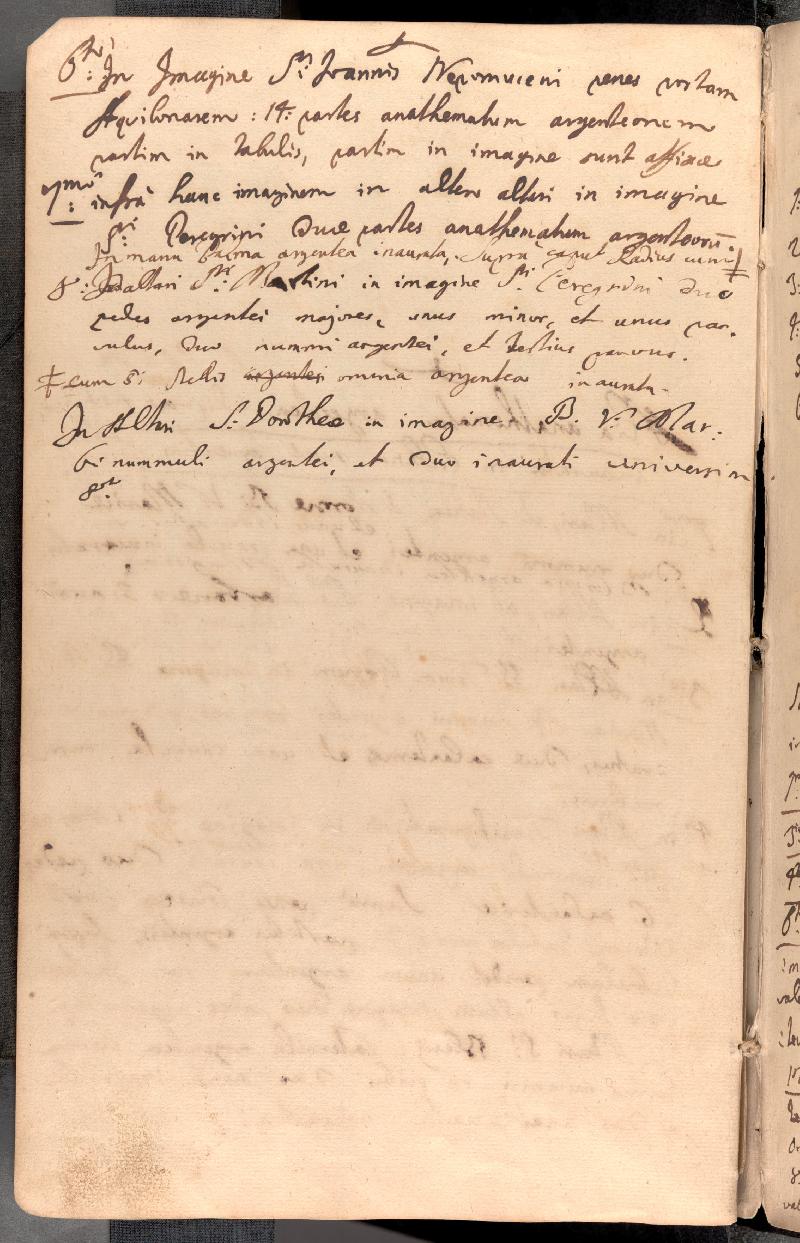 6to: In Imagine Sti: Joannis Nepomuceni penes portam
Aquilonarem : 14: partes anathematum argenteorum
partim in tabulis, partim in imagine sunt affixae
7mo: infra hanc imaginem in altero altari in imagine
Sti: Peregrini duae partes anathematum argenteorū:
In manu palma argentea inaurata, supra caput Radius cum ‡
8: In altari Sti: Martini in imagine Sti: Peregrini duo
pedes argentei majores, unus minor, et unus par-
vulus, duo nummi argentei, et tertius parvus.
‡ cum 8: stellis argentei omnia argentea inaurata.
In Altari S: Dorotheae in imagine B. V. Mar:
6: nummuli argentei, et duo inaurati universim
8: